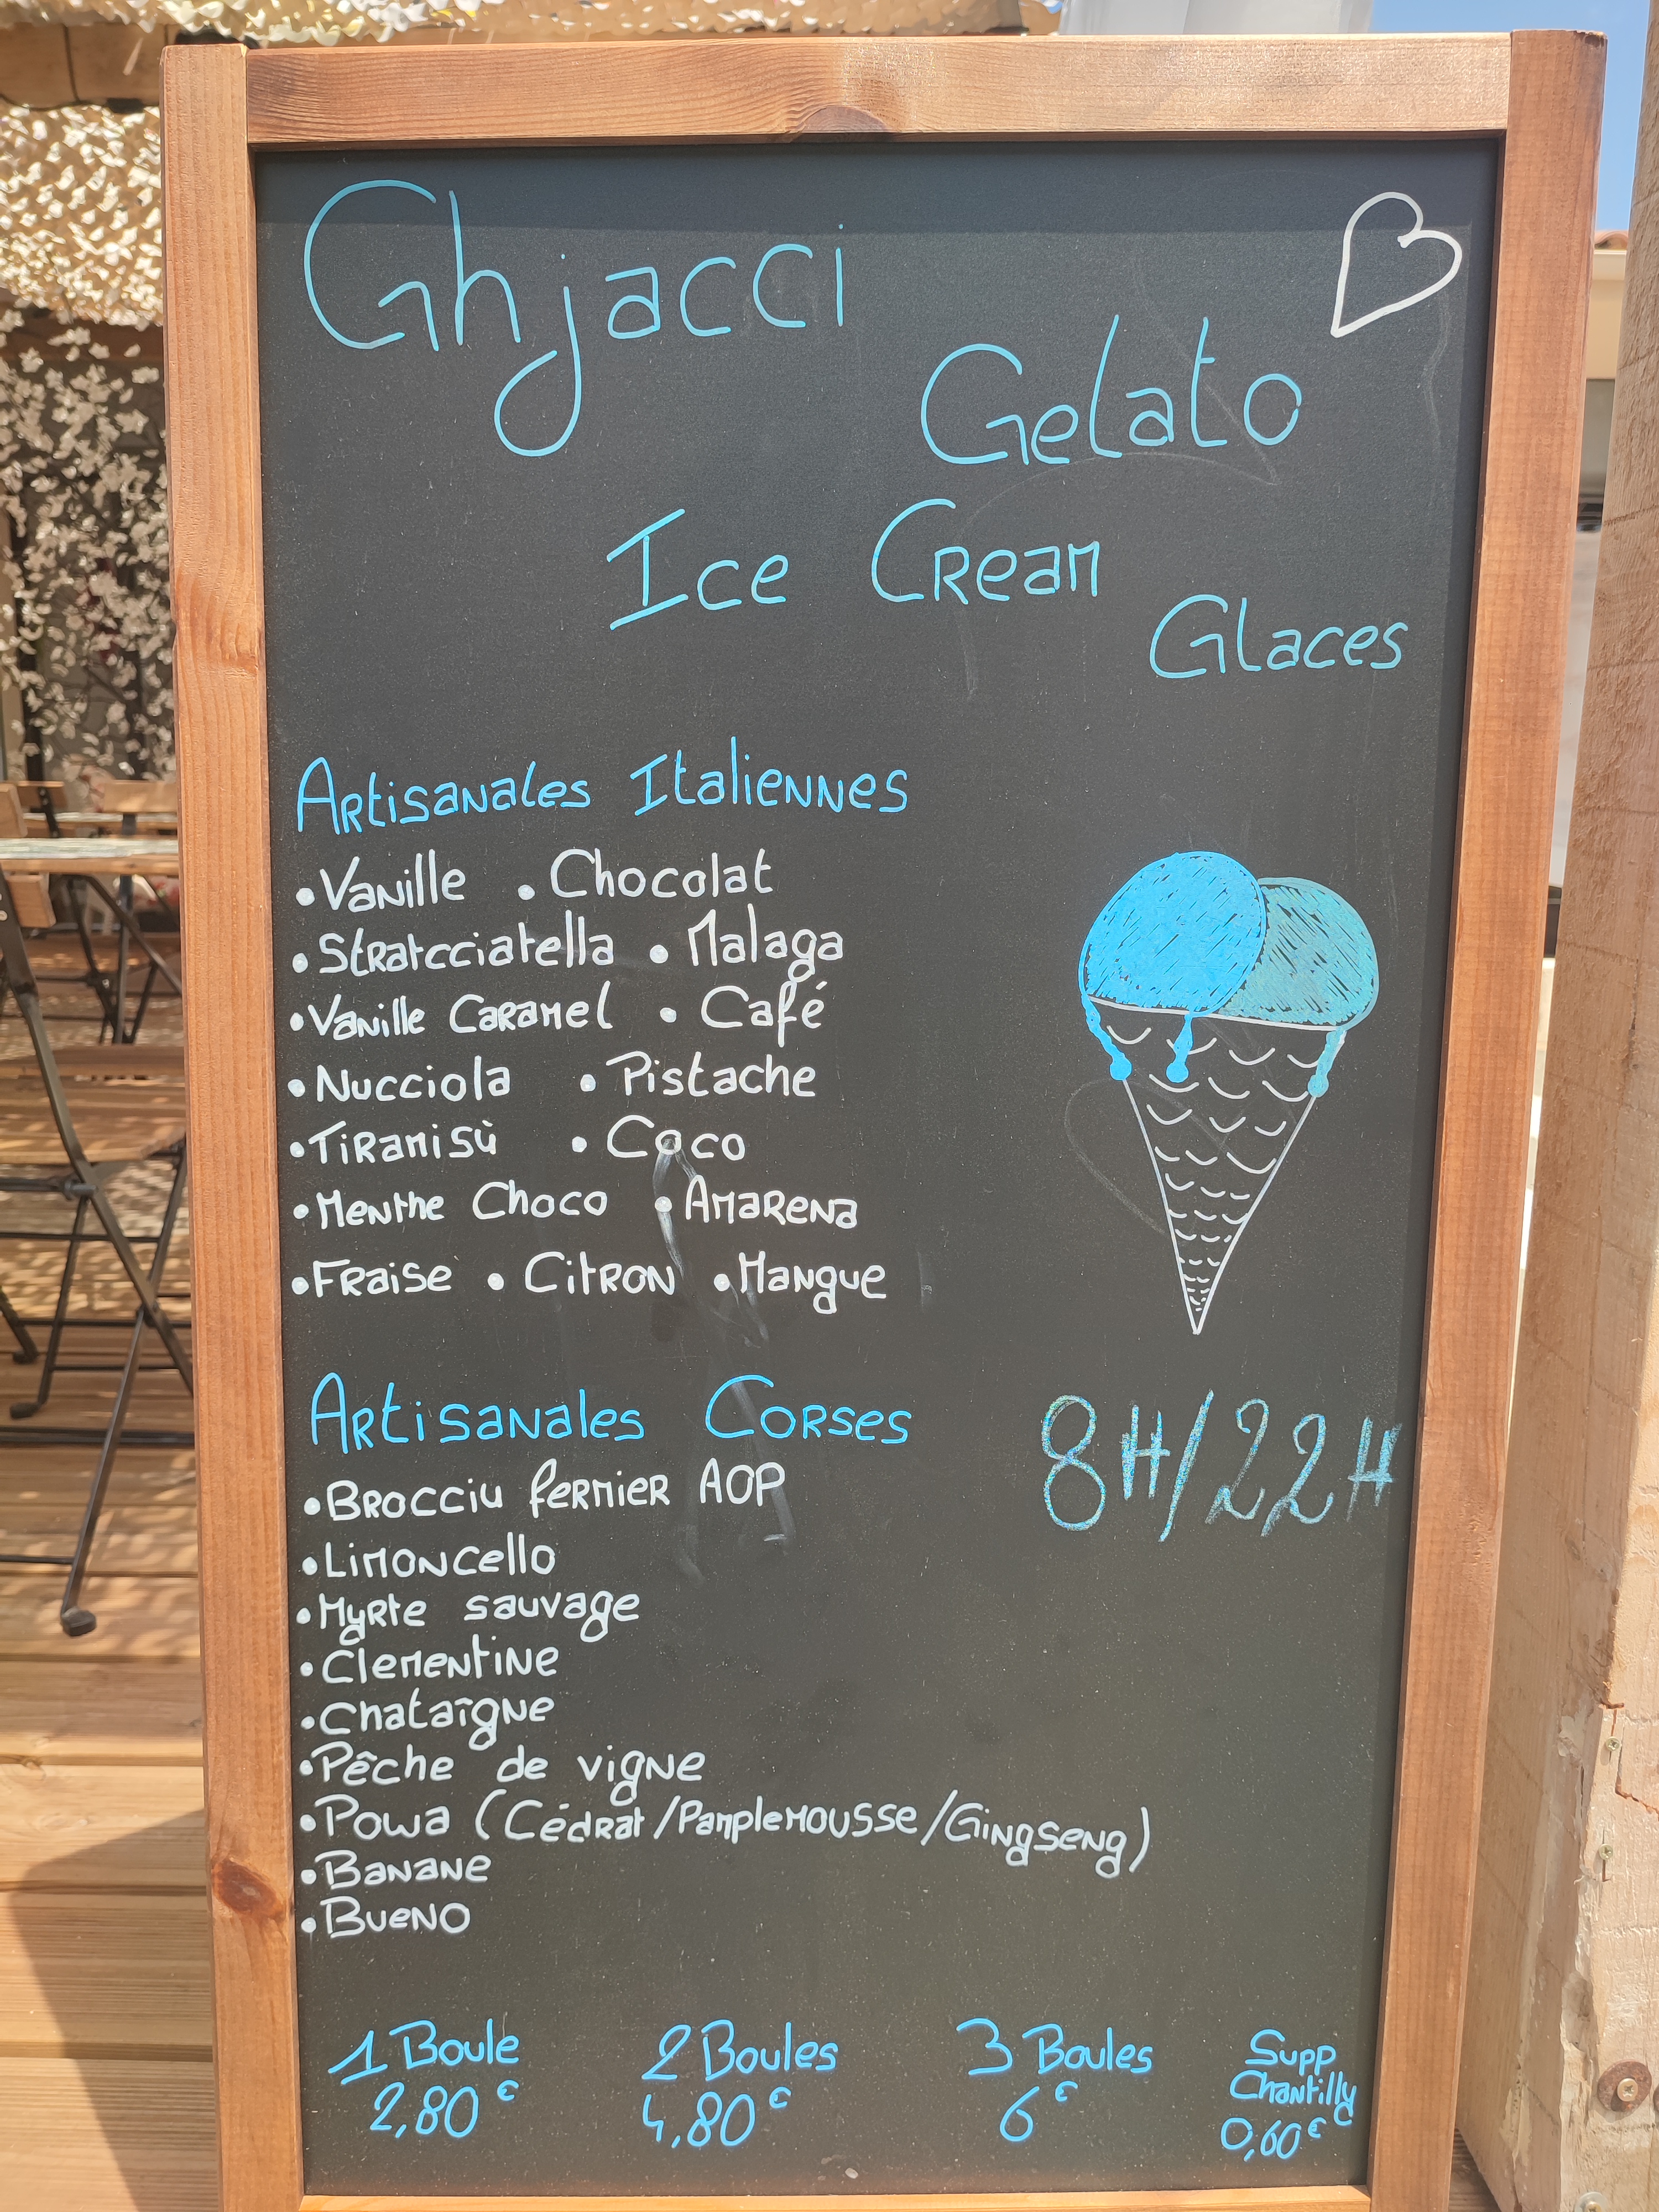 Ghjacci
Gelato
Ice Cream
Glaces
Artisanales Italiennes
• Vanille • Chocolat
• Stratcciatella • Malaga
• Vanille Caramel • Café
• Nucciola • Pistache
• Tiramisù • Coco
• Menthe Choco • Amarena
• Fraise • Citron • Mangue
Artisanales Corses
• Brocciu fermier AOP
• Limoncello
• Myrte sauvage
• Clementine
• Chataîgne
• Pêche de vigne
• Powa (Cédrat/Pamplemousse/Gingseng)
• Banane
• Bueno
8H/22H
1 Boule 2 Boules 3 Boules Supp Chantilly
2,80€ 4,80€ 6€ 0,60€